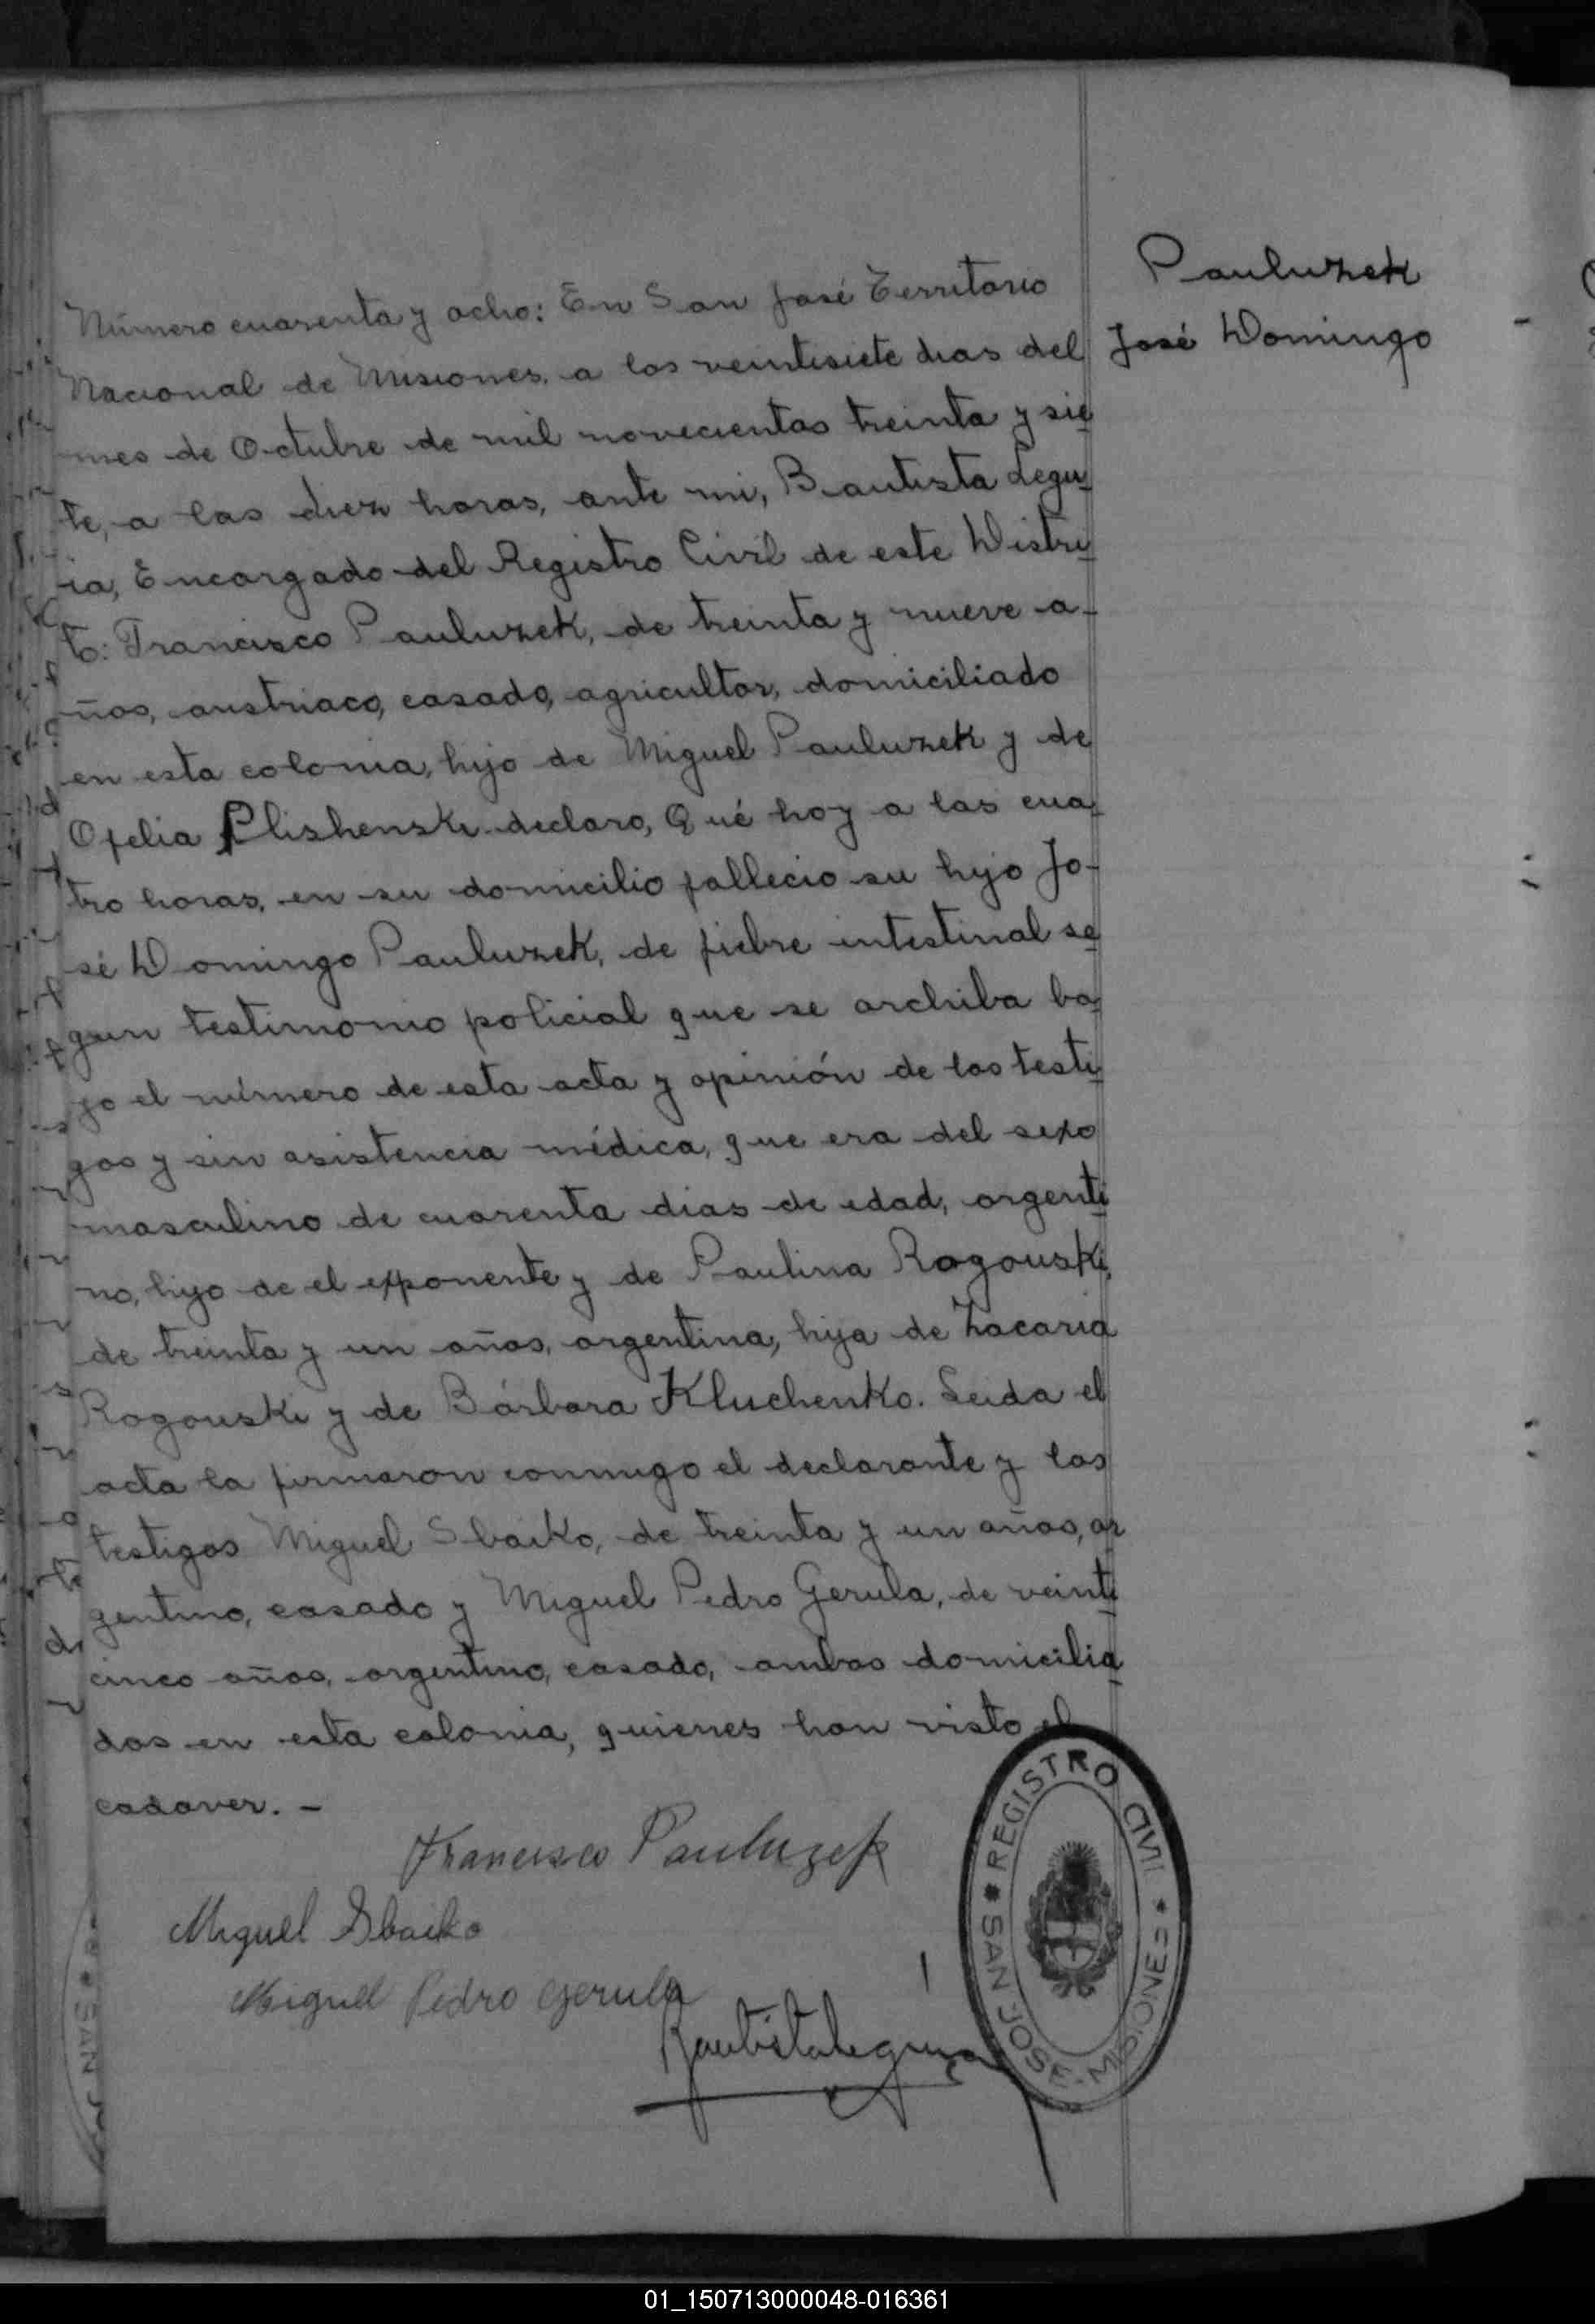 Pauluzek
José Domingo
Número cuarenta y ocho: En San José Territorio
Nacional de Misiones, a los veintisiete dias del
mes de Octubre de mil novecientos treinta y sie
te, a las diez horas, ante mi, Bautista Legui
ia, Encargado del Registro Civil de este Distri
to: Francisco Pauluzek, de treinta y nueve a-
ños, austriaco, casado, agricultor, domiciliado
en esta colonia, hijo de Miguel Pauluzek y de
Ofelia Plishenski declaro, Qué hoy a las cua
tro horas, en su domicilio fallecio su hijo Jo-
sé Domingo Pauluzek, de fiebre intestinal se
gun testimonio policial que se archiba ba
jo el número de esta acta y opinión de los testi
gos y sin asistencia médica, que era del sexo
masculino de cuarenta dias de edad, argenti
no, hijo de el exponente y de Paulina Rogouski,
de treinta y un años, argentina, hija de Zacaria
Rogouski y de Bárbara Kluchenko. Leida el
acta la firmaron conmigo el declarante y los
testigos Miguel Sbaiko, de treinta y un años, ar
gentino, casado y Miguel Pedro Gerula, de veinti
cinco años, argentino, casado, ambos domicilia
dos en esta colonia, quienes han visto el
cadaver. -
Francisco Pauluzek
Miguel Sbaiko
Miguel Pedro Gerula
REGISTRO CIVIL
SAN JOSE - MISIONES
01_150713000048-016361